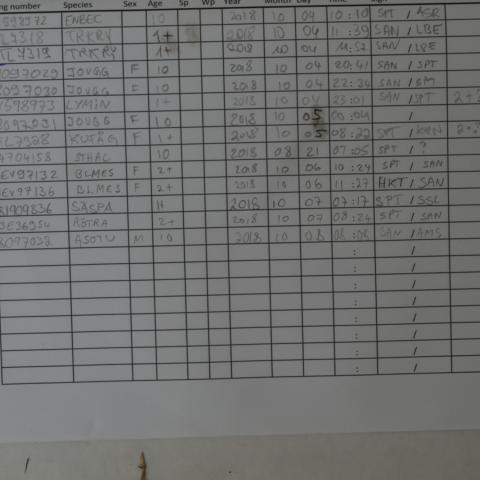 ng number Species Sex Age Sp Wp Year Month Day
598972 ENBEC 10 2018 10 04 10:10 SPT / ASR
L7318 TRKRY 1+ 2018 10 04 11:39 SAN / LBE
TL7319 TRKRY 1+ 2018 10 04 11:52 SAN /
8097029 JOUGG F 10 2018 10 04 20:41 SAN / SPT
8097030 JOUGG F 10 2018 10 04 22:34 SAN /
598973 LYMIN 1+ 2018 10 04 23:01 SAN / SPT 2+
8097031 JOUGG F 10 2018 10 05 00:04 /
L7328 F 1+ 2018 10 05 08:22 SPT /
4704158 STHAL 10 2018 08 21 07:05 SPT / ?
EV97132 BLMES F 2+ 2018 10 06 10:24 SPT / SAN
EV97136 BLMES F 2+ 2018 10 06 11:27 HKT / SAN
81909836 SASPA 2018 10 07 07:17 SPT / SSL
JE36954 ASTRA 2+ 2018 10 07 08:24 SPT / SAN
8097032 ASOTU M 10 2018 10 08 SAN / AMS